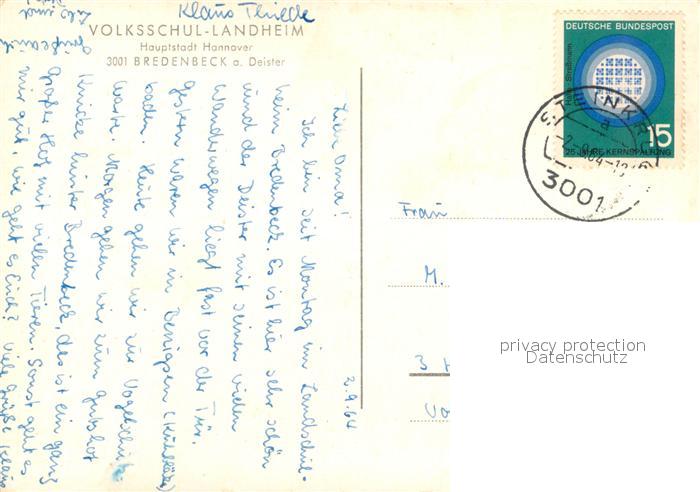 Klaus Thiele
VOLKSSCHUL-LANDHEIM
Hauptstadt Hannover
3001 BREDENBECK a. Deister
2.9.64
Liebe Oma!
Ich bin seit Montag im Landschul-
heim Bredenbeck. Es ist hier sehr schön
und der Deister mit seinen vielen
Wanderwegen liegt fast vor der Tür.
Gestern waren wir in Benigsen
baden. Heute gehen wir zur Vogelschutz
warte. Morgen gehen wir zum Gutshof
Knicke hinter Bredenbeck, das ist ein ganz
großer Hof mit vielen Tieren. Sonst geht es
mir gut, wie geht es Euch? Viele Grüße Klaus
DEUTSCHE BUNDESPOST
Hahn Straßmann
15
25 JAHRE KERNSPALTUNG
a
3001
Frau
M.
3
privacy protection
Datenschutz